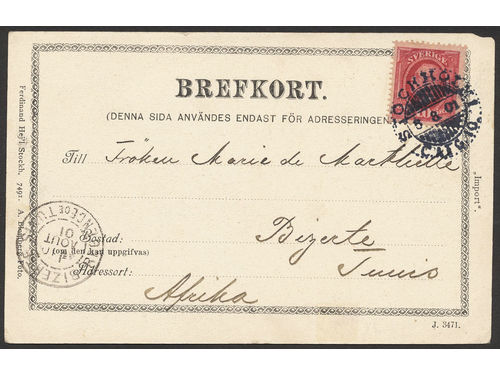 SVERIGE
BREFKORT.
(DENNA SIDA ANVÄNDES ENDAST FÖR ADRESSERINGEN)
STOCKHOLM 1.
5 8 01
Till Fröken Marie de
Bostad: Bizerte
(om den kan uppgifvas)
Adressort: Tunis
Afrika
AOUT
01
Ferdinand Hey'l Stockh. 7491. A. Foto.
"Import".
J. 3471.